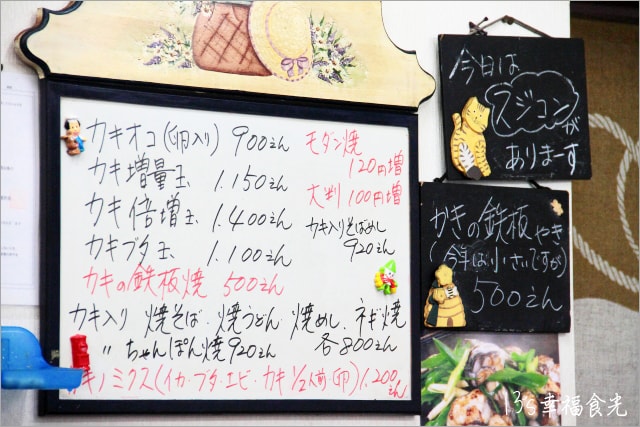 カキオコ(卵入り) 900えん
カキ増量玉 1.150えん
カキ倍増玉 1.400えん
カキブタ玉 1.100えん
カキの鉄板焼 500えん
モダン焼
120円増
大判100円増
カキ入りそばめし
920えん
カキ入り 焼そば・焼うどん・焼めし・ネギ焼
〃 ちゃんぽん焼920えん 各800えん
ミクス(イカ・ブタ・エビ・カキ1/2人前・卵)1.200えん
今日は
スジコンが
ありまーす
かきの鉄板やき
(今年は小さいですが)
500えん
幸福食光